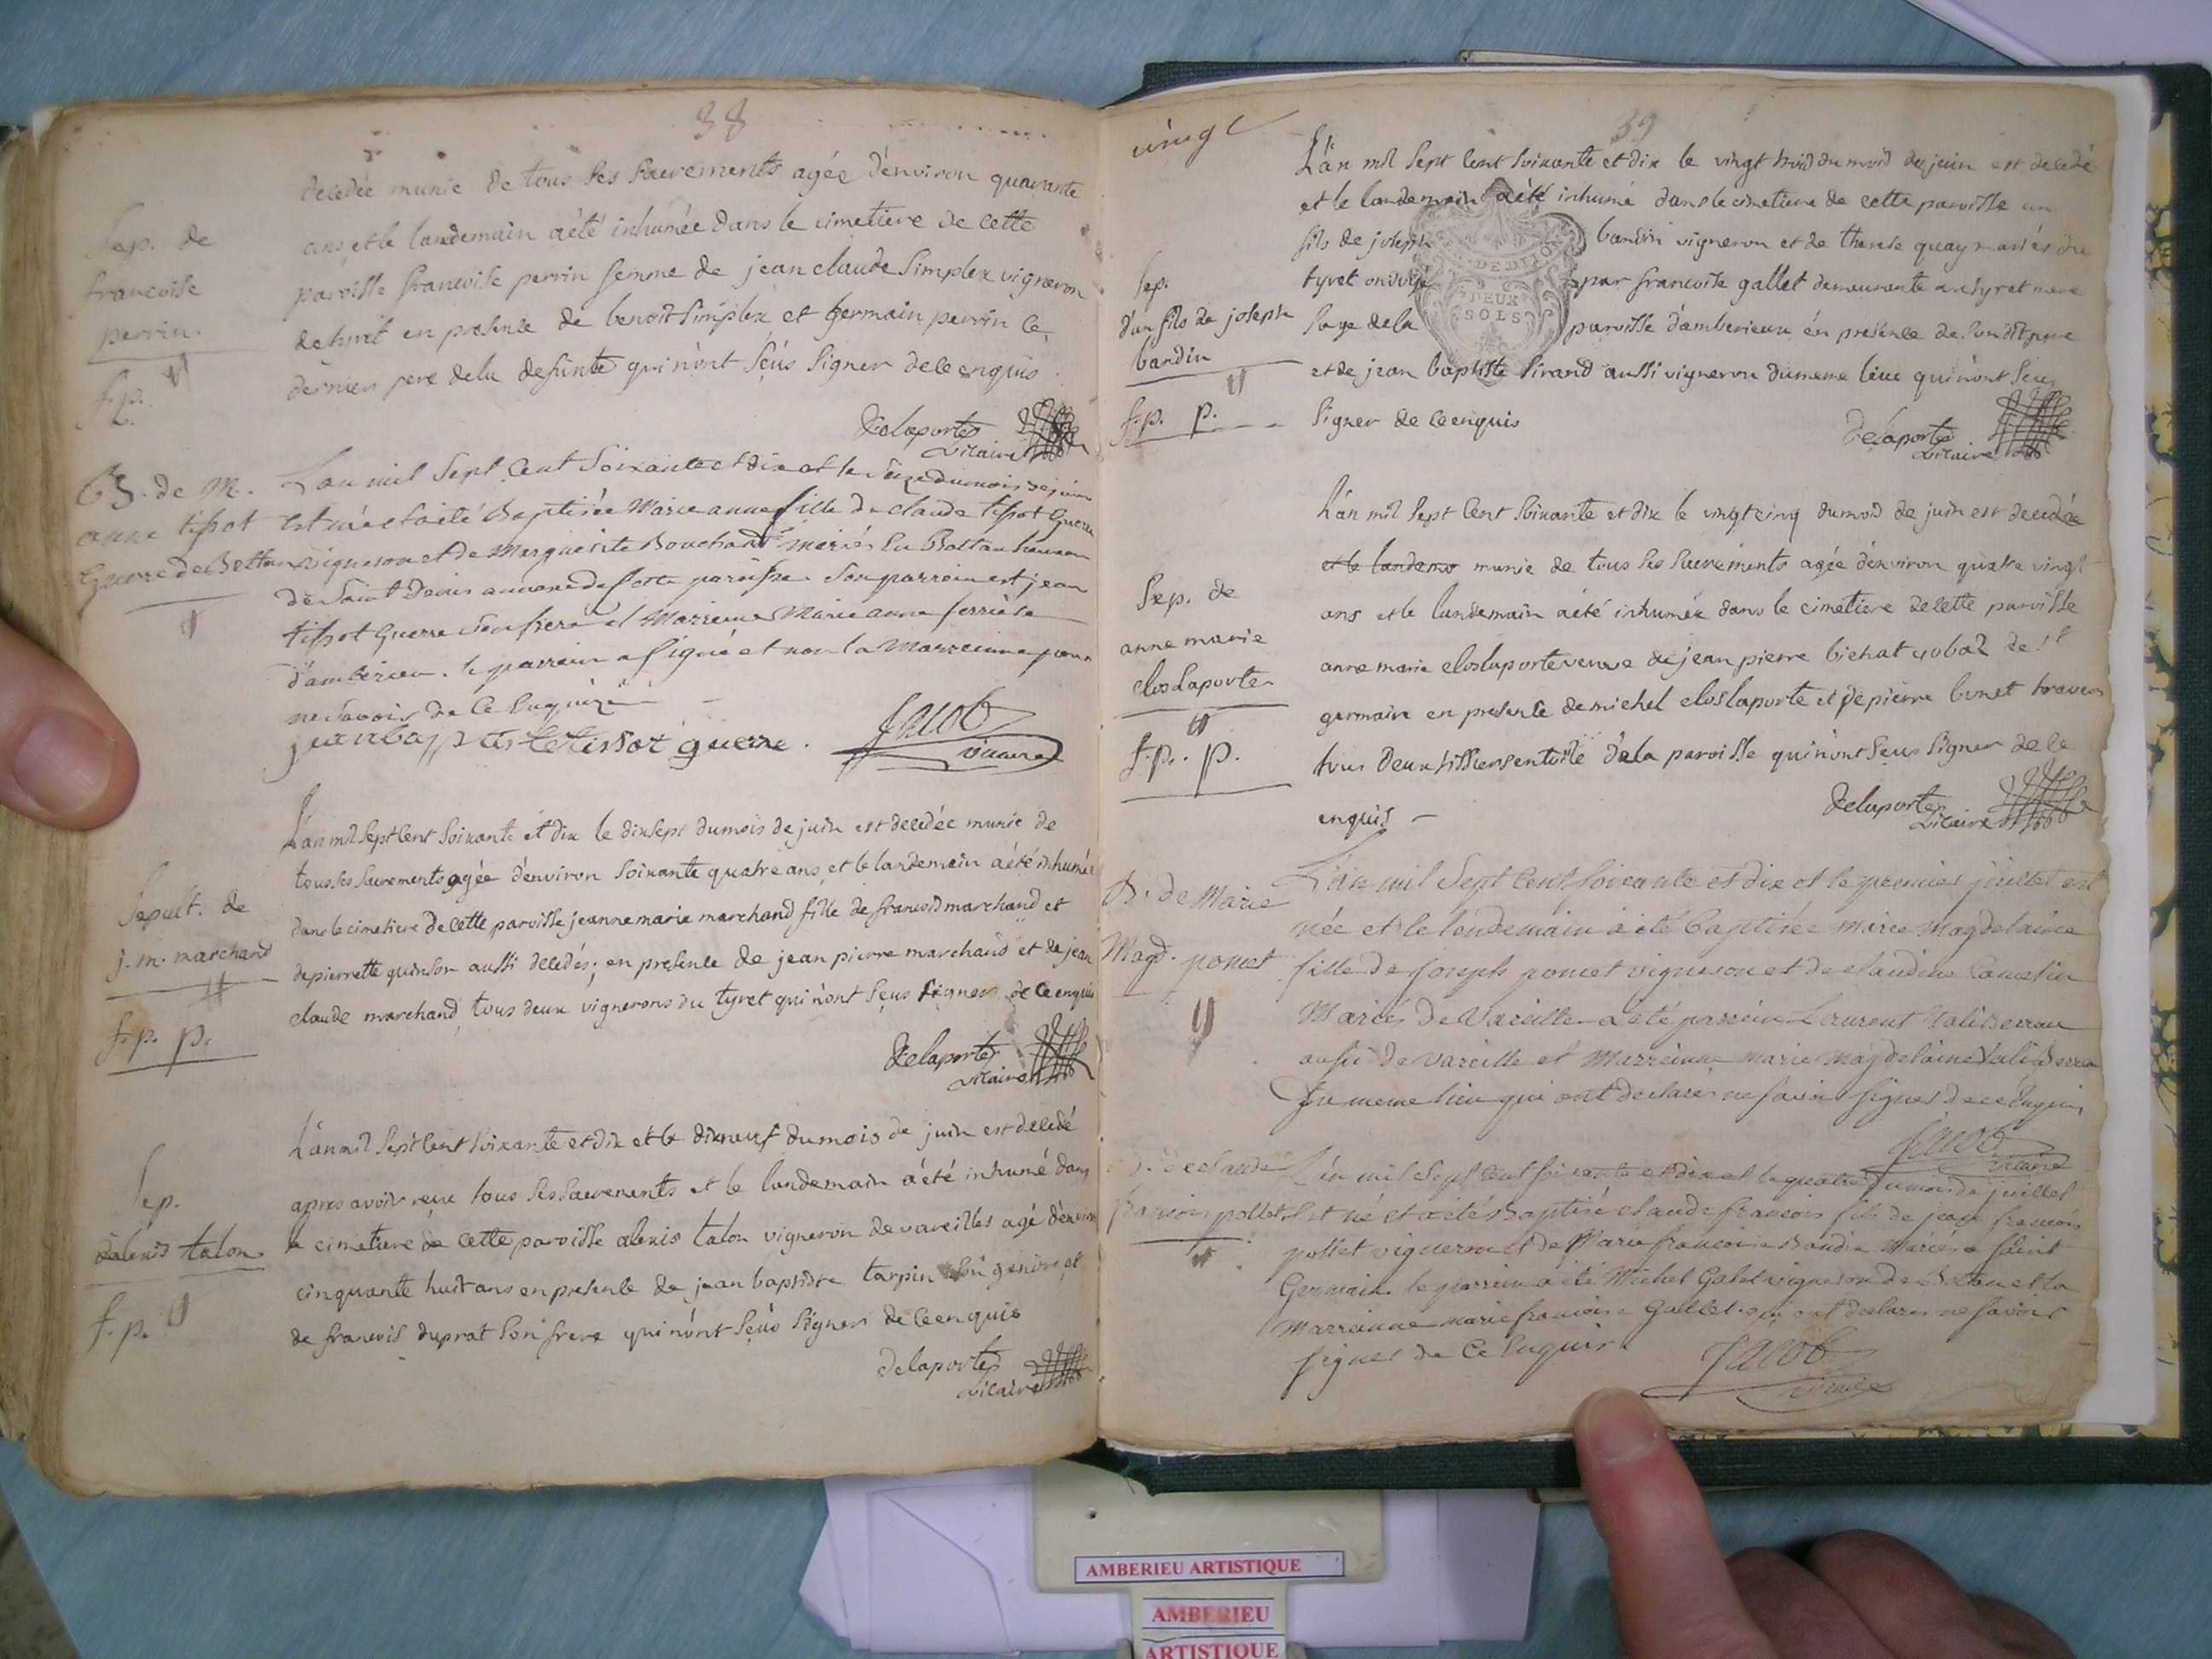 38
decedée munie de tous ses sacrements agée d'environ quarante
ans, et le landemain a été inhumée dans le cimetiere de cette
paroisse francoise perrin femme de jean claude simplex vigneron
en presence de benoit simplex et germain perrin ce
dernier pere dela defunte qui n'ont sçus signer de ce enquis
Sep. de
francoise
perrin.
f. p.
Delaporte
vicaire
B. de M.
anne tissot
Guerre de Bettan
L'an mil sept cent soixante et dix et le seize du mois de juin
est née et a été Baptisée Marie anne fille de claude tissot Guerre
vigneron et de Marguerite Bouchard mariés en Bettan hameau
de Saint Denis annexe de cette paroisse son parrein est jean
tissot Guerre son frere et Marreine Marie anne ferriere
d'amberieu. le parrein a signé et non la Marreinne pour
ne savoir de ce Enquise
jean baptiste tissot guerre.
Jacob
vicaire
L'an mil sept cent soixante et dix le dix sept du mois de juin est decedée munie de
tous ses sacrements agée d'environ soixante quatre ans, et le landemain a été inhumée
dans le cimetiere de cette paroisse jeanne marie marchand fille de francois marchand et
de pierrette quinson aussi decedés; en presence de jean pierre marchand et de jean
claude marchand tous deux vignerons du tyret qui n'ont sçus signer de ce enquis
Sepult. de
j. m. marchand
f. p. p.
Delaporte
vicaire
L'an mil sept cent soixante et dix et le dix neuf du mois de juin est decedé
apres avoir reçu tous ses sacrements et le landemain a été inhumé dans
le cimetiere de cette paroisse alexis talon vigneron de vareilles agé d'environ
cinquante huit ans en presence de jean baptiste tarpin son gendre et
de francois duprat son frere qui n'ont sçus signer de ce enquis
Sep.
d'alexis talon
f. p.
delaporte
vicaire
vingt
39
L'an mil sept cent soixante et dix le vingt trois du mois de juin est decedé
et le landemain a été inhumé dans le cimetiere de cette paroisse un
fils de joseph bardin vigneron et de therese quay mariés du
tyret ondoyé par francoise gallet demeurante au tyret mere
sage de la paroisse d'amberieux en presence de son dit pere
et de jean baptiste Sirand aussi vigneron du meme lieu qui n'ont sçus
signer de ce enquis
DEUX
SOLS
Sep.
d'un fils de joseph
bardin
f. p. p.
delaporte
vicaire
L'an mil sept cent soixante et dix le vingt cinq du mois de juin est decedée
et le landema munie de tous ses sacrements agée d'environ quatre vingt
ans et le landemain a été inhumée dans le cimetiere de cette paroisse
anne marie clos laporte veuve de jean pierre bichat de St
germain en presence de michel clos laporte et de pierre bonet
tous deux tissiers en toile de la paroisse qui n'ont sçus signer de ce
enquis
Sep. de
anne marie
clos Laporte
f. p. p.
Delaporte
vicaire
B. de Marie
Magd. poncet
L'an mil sept cent soixante et dix et le premier juillet est
née et le lendemain a été Baptisée marie magdelaine
fille de Joseph poncet vigneron et de claudine
Mariés de Vareille a été parrein Laurent
aussi de vareille et Marreinne marie magdelaine
du meme lieu qui ont declarés ne savoir signer de ce Enquis
Jacob
vicaire
B. de claude
francois pollet
L'an mil sept cent soixante et dix et le quatre du mois de juillet
est né et a été Baptisé claude francois fils de jean francois
pollet vigneron et de Marie francoise Bardin Mariés a saint
Germain. le parrein a été Michel Galet vigneron de Bettan et la
marreinne marie francoise Gallet. qui ont declarés ne savoir
signer de ce Enquis
Jacob
vicaire
AMBERIEU ARTISTIQUE
AMBERIEU
ARTISTIQUE